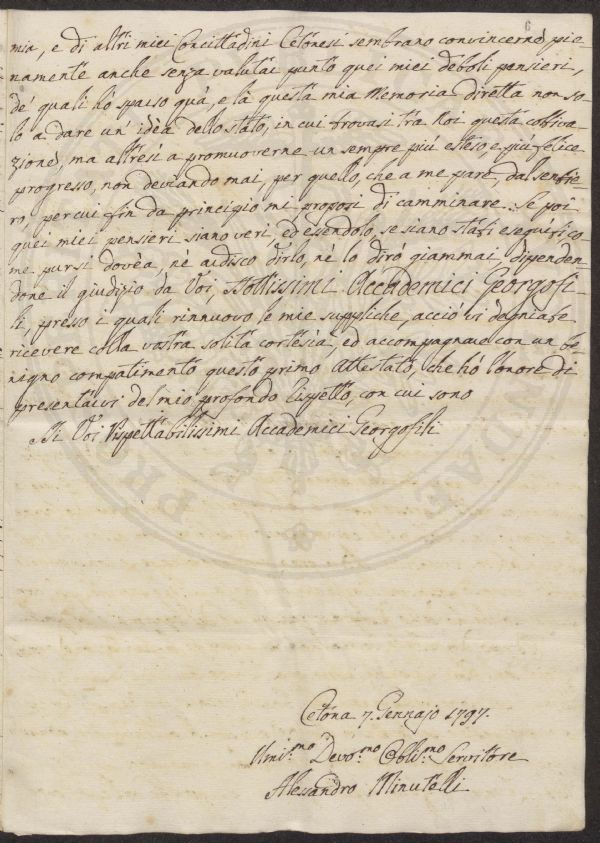 6
mia, e di altri miei Concittadini Cetonesi sembrano convincerne pie-
namente anche senza valutar punto quei miei deboli pensieri,
de' quali hò sparso quà, e là questa mia Memoria diretta non so-
lo a dare un' idèa dello stato, in cui trovasi tra Noi questa coltiva-
zione, ma altresì a promuoverne un sempre più esteso, e più felice
progresso, non deviando mai, per quello, che a me pare, dal sentie-
ro, per cui fin da principio mi proposi di camminare. Se poi
quei miei pensieri siano veri, ed essendolo, se siano stati eseguiti co-
me pursi dovèa, nè ardisco dirlo, nè lo dirò giammai, dipenden-
done il giudizio da Voi, Dottissimi Accademici Georgofi-
li, presso i quali rinnuovo le mie suppliche, acciò vi degniate
ricevere colla vostra solita cortesia, ed accompagnare con un be-
nigno compatimento questo primo attestato, che hò l'onore di
presentarvi del mio profondo rispetto, con cui sono
Di Voi Rispettabilissimi Accademici Georgofili
PRO
DAE
Cetona 7. Gennajo 1797.
Umi.mo Devo.mo Obbli.mo Servitore
Alessandro Minutelli